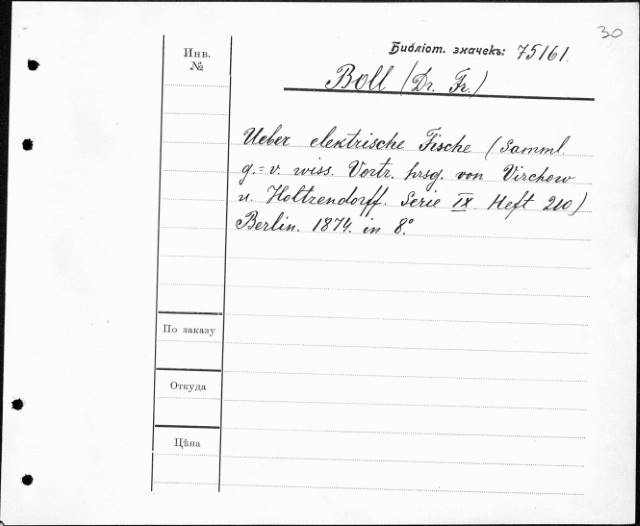 30
Инв.
№
Библіот. значекъ: 75161.
Boll (Dr. Fr.)
Ueber elektrische Fische (Samml.
g.=v. wiss. Vortr. hrsg. von Virchow
u. Holtzendorff. Serie IX. Heft 210)
Berlin. 1874. in 8°.
По заказу
Откуда
Цѣна